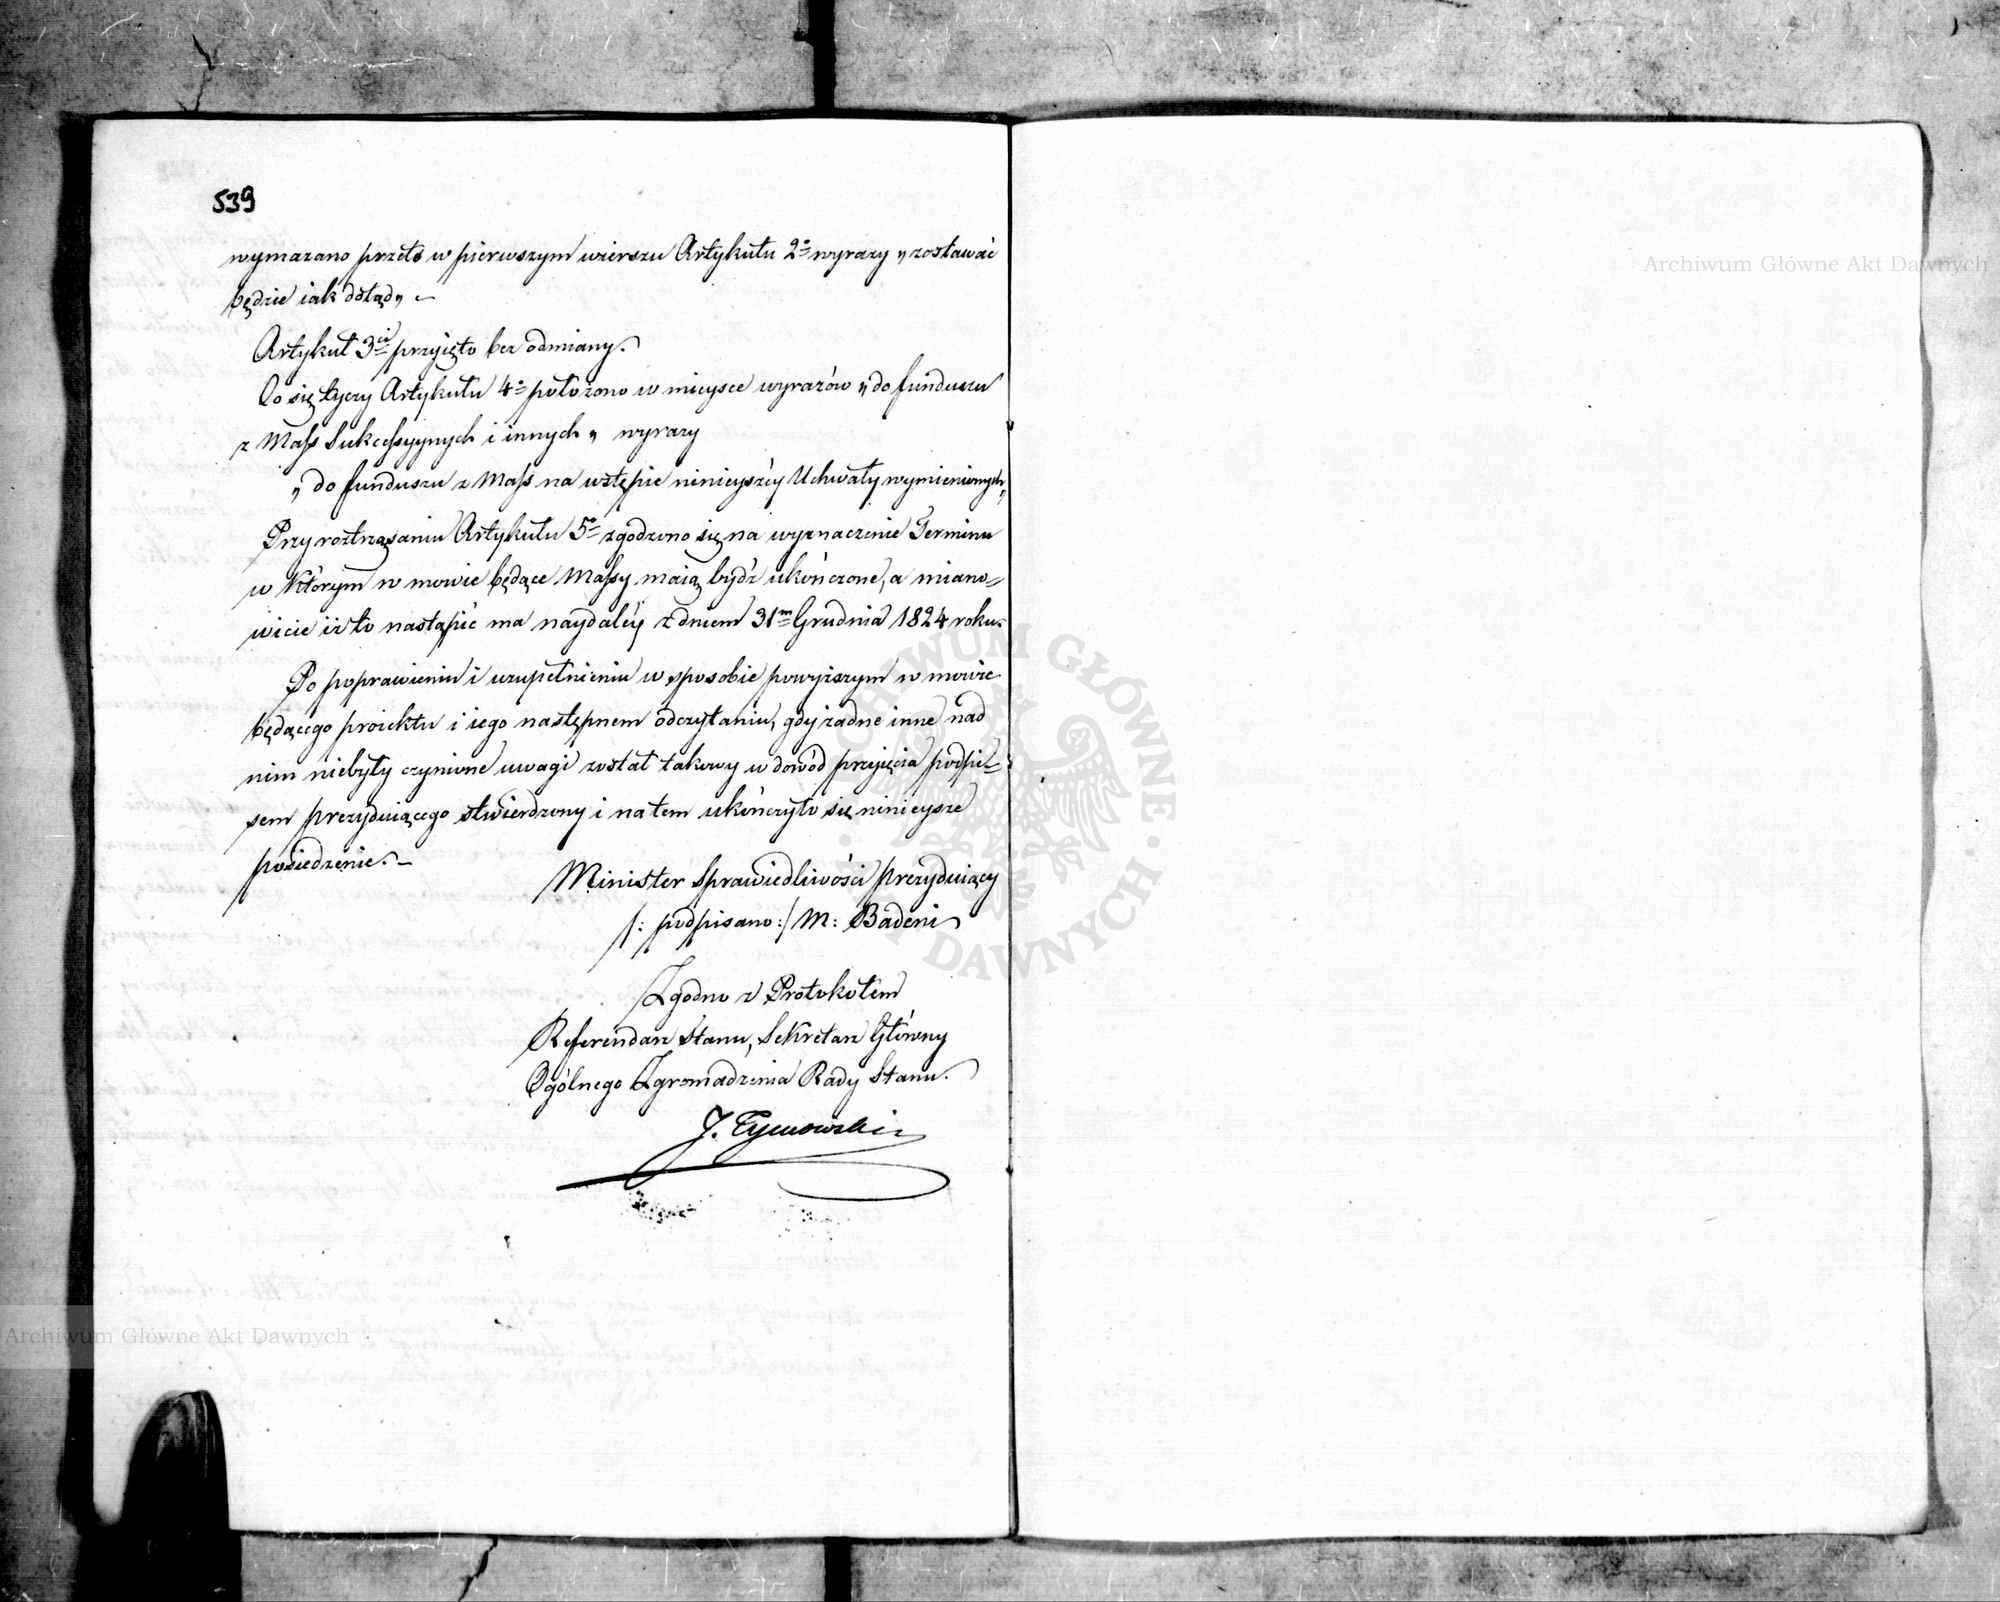 539
wymazano przeto w pierwszym wierszu Artykułu 2º wyrazy „zostawać
będzie iak dotąd„ –
Artykuł 3ci przyięto bez odmiany.
Co się tyczy Artykułu 4º położono w mieysce wyrazów „do funduszu
z Mass Sukcessyynych i innych„ wyrazy
„do funduszu z Mass na wstępie ninieyszéy Uchwały wymienionych„
Przy roztrząsaniu Artykułu 5º zgodzono się na wyznaczenie Terminu
w którym w mowie będące Massy maią bydź ukończone, a miano=
wicie iż to nastąpić ma naydaléy z dniem 31m Grudnia 1824 roku.
Po poprawieniu i uzupełnieniu w sposobie powyższym w mowie
będącego proiektu i iego następnem odczytaniu, gdy żadne inne nad
nim niebyły czynione uwagi został takowy w dowód przyięcia podpi=
sem prezyduiącego stwierdzony i na tem ukończyło się ninieysze
posiedzenie. –
Minister Sprawiedliwości prezyduiący
/: podpisano :/ M: Badeni
Zgodno z Protokołem
Referendarz Stanu, Sekretarz Główny
Ogólnego Zgromadzenia Rady Stanu.
J. Tymowski
Archiwum Główne Akt Dawnych
ARCHIWUM GŁÓWNE AKT DAWNYCH
Archiwum Główne Akt Dawnych